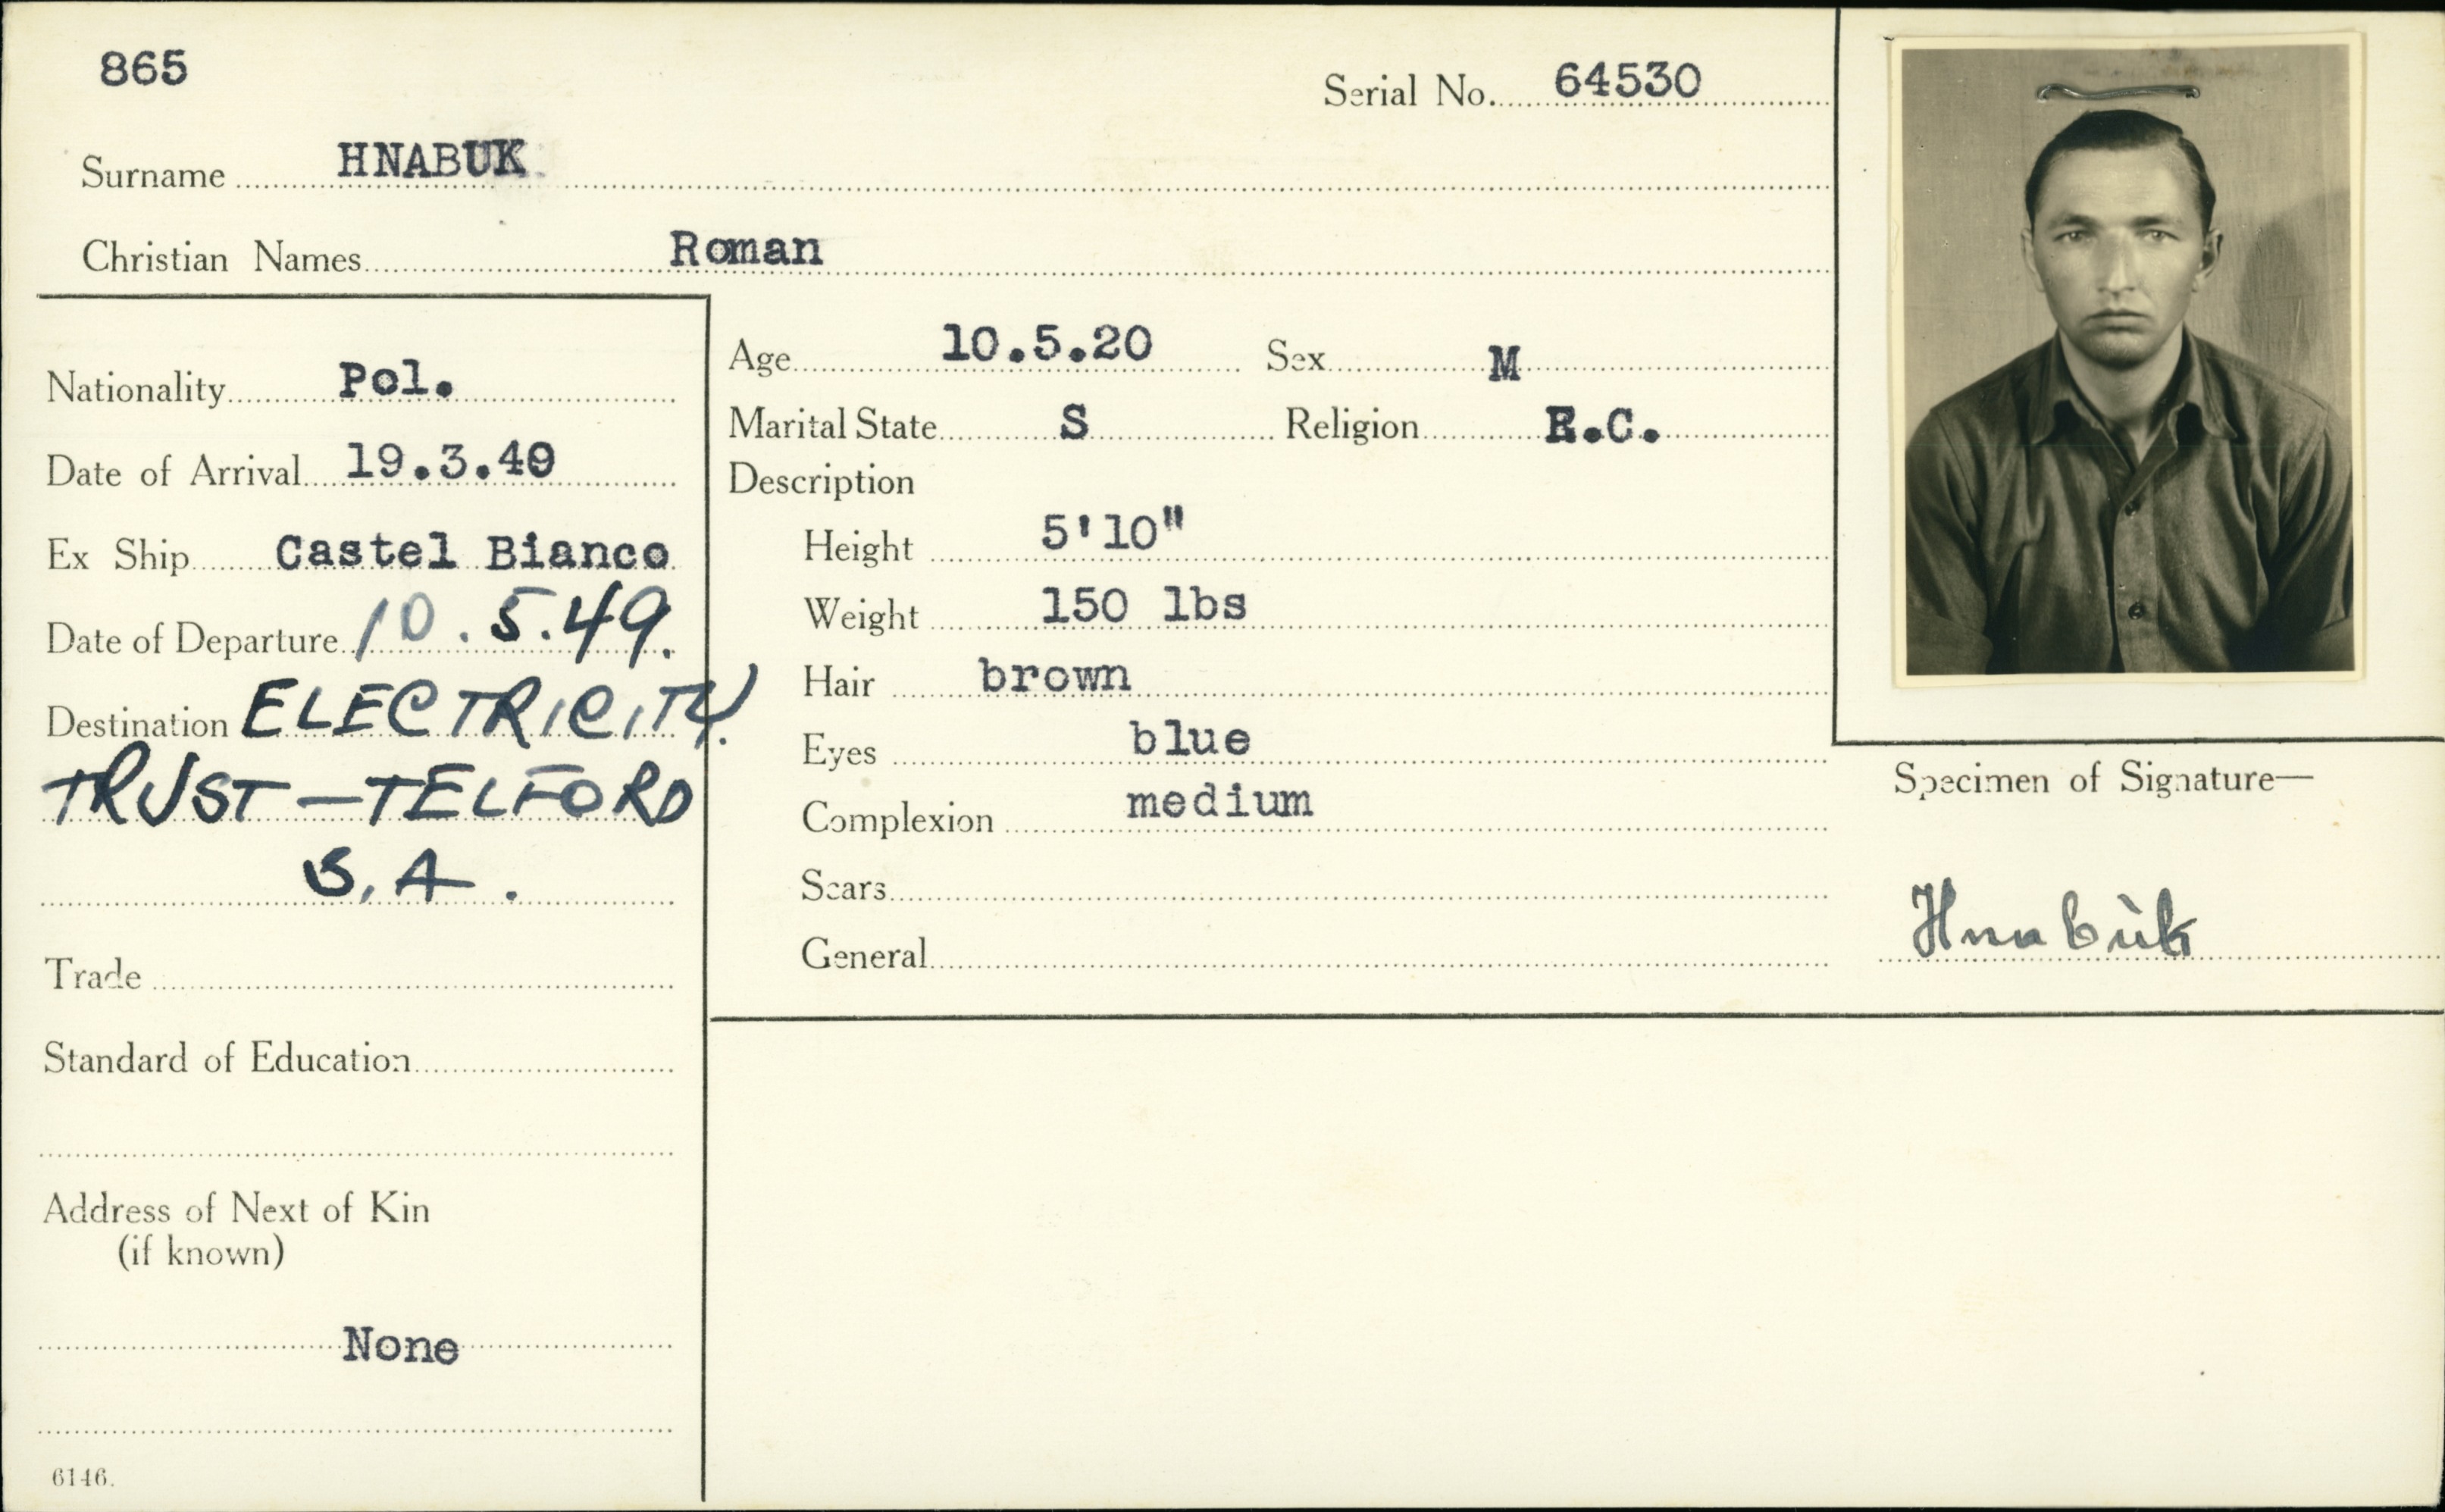 865
Serial No. 64530
Surname HNABUK
Christian Names Roman
Nationality Pol.
Date of Arrival 19.3.49
Ex Ship Castel Bianco
Date of Departure 10.5.49.
Destination ELECTRICITY
TRUST - TELFORD
S.A.
Trade
Standard of Education
Address of Next of Kin
(if known)
None
6146.
Age 10.5.20 Sex M
Marital State S Religion R.C.
Description
Height 5'10"
Weight 150 lbs
Hair brown
Eyes blue
Complexion medium
Scars
General
Specimen of Signature—
Hnabuk